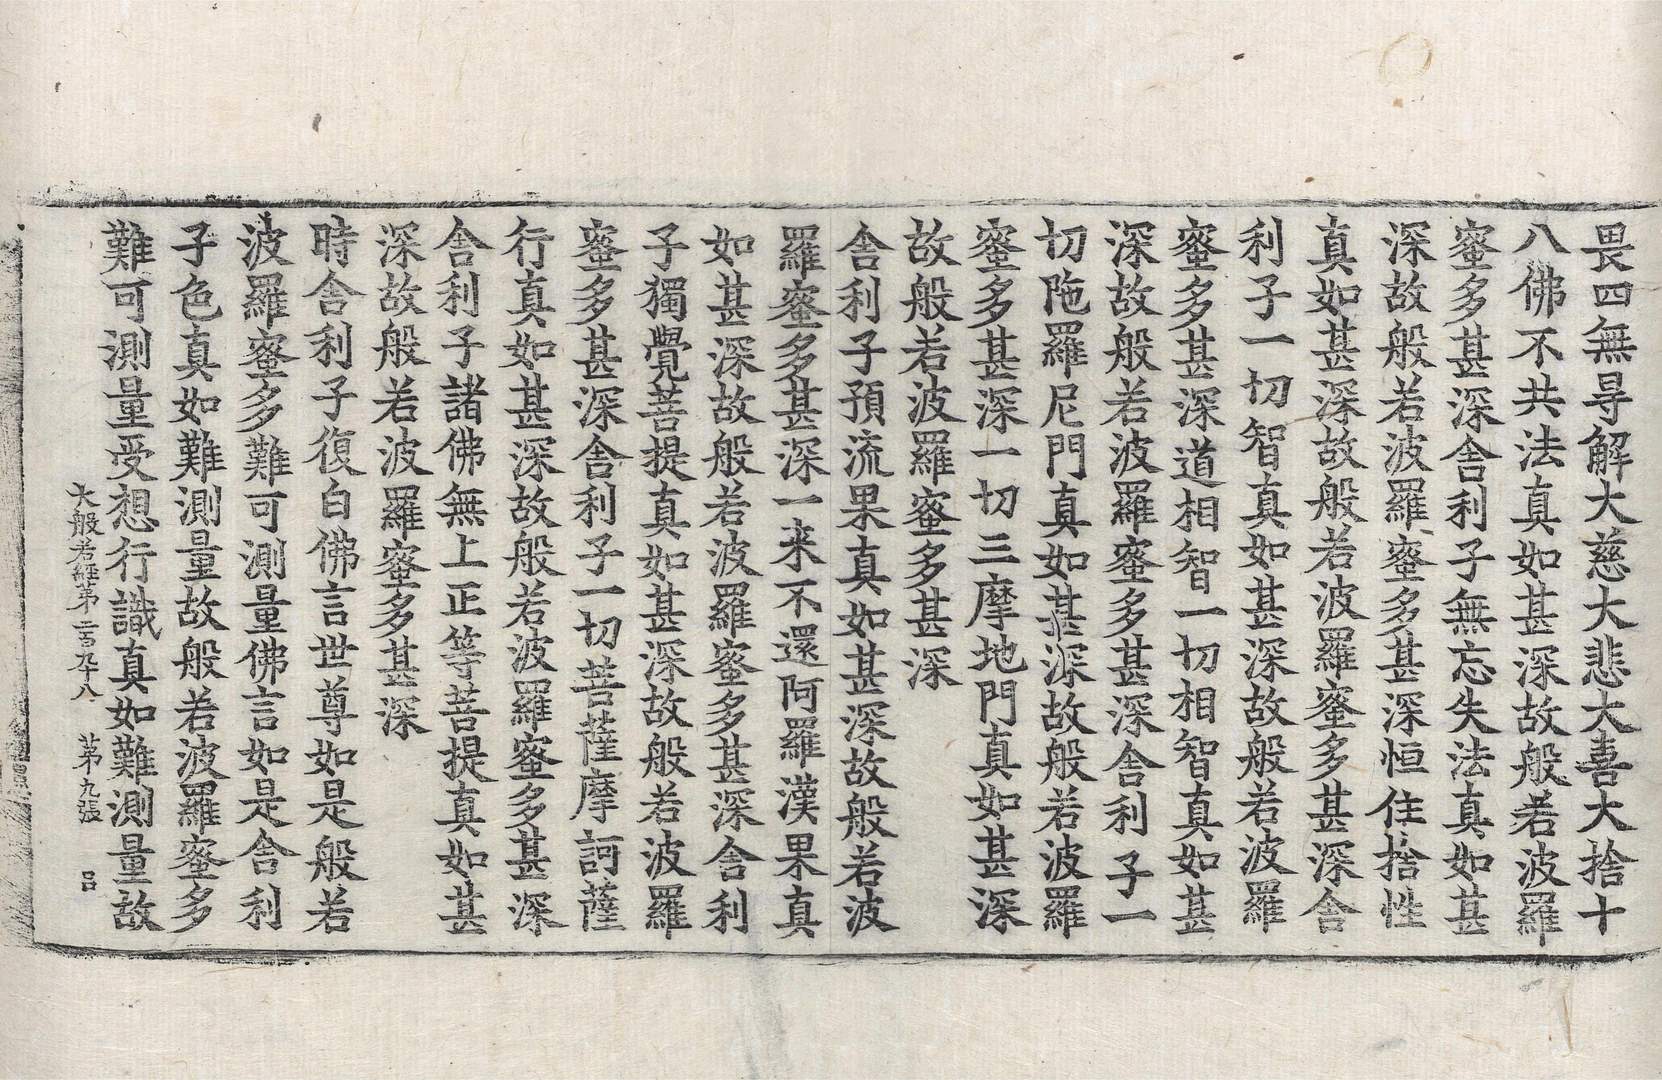 畏四無㝵解大慈大悲大喜大捨十
八佛不共法真如甚深故般若波羅
蜜多甚深舍利子無忘失法真如甚
深故般若波羅蜜多甚深恒住捨性
真如甚深故般若波羅蜜多甚深舍
利子一切智真如甚深故般若波羅
蜜多甚深道相智一切相智真如甚
深故般若波羅蜜多甚深舍利子一
切陁羅尼門真如甚深故般若波羅
蜜多甚深一切三摩地門真如甚深
故般若波羅蜜多甚深
舍利子預流果真如甚深故般若波
羅蜜多甚深一来不還阿羅漢果真
如甚深故般若波羅蜜多甚深舍利
子獨覺菩提真如甚深故般若波羅
蜜多甚深舍利子一切菩薩摩訶薩
行真如甚深故般若波羅蜜多甚深
舍利子諸佛無上正等菩提真如甚
深故般若波羅蜜多甚深
時舍利子復白佛言世尊如是般若
波羅蜜多難可測量佛言如是舍利
子色真如難測量故般若波羅蜜多
難可測量受想行識真如難測量故
大般若經第二百九十八 苐九張 吕